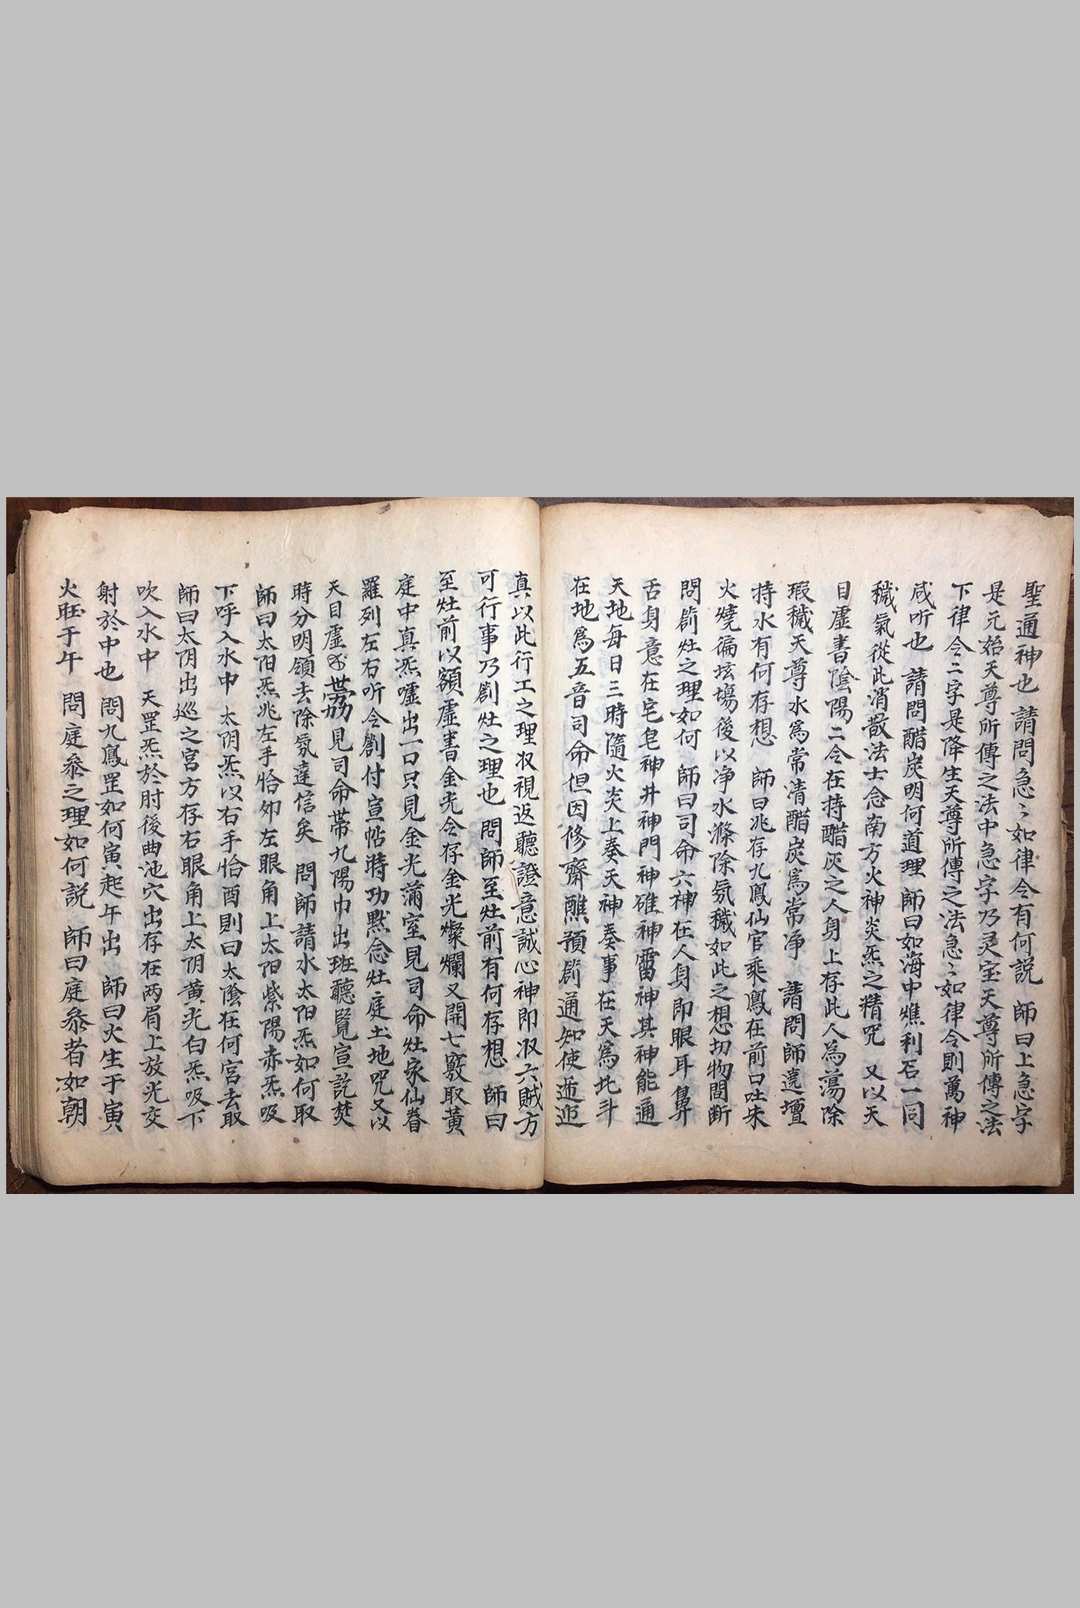 聖通神也 請問急〻如律令有何説 師曰上急字
是元始天尊所傳之法中急字乃灵宝天尊所傳之法
下律令二字是降生天尊所傳之法急〻如律令則萬神
咸听也 請問醋炭明何道理 師曰如海中燋利石一同
穢氣從此消散法士念南方火神炎炁之精咒 又以天
目虛書陰陽二令在持醋灰之人身上存此人為蕩除
瑕穢天尊水爲常清醋炭爲常净 請問師遶壇
持水有何存想 師曰兆存九鳳仙官乘鳳在前口吐朱
火燒徧坛塲後以净水滌除氛穢如此之想切物間断
問劄灶之理如何 師曰司命六神在人身即眼耳鼻
舌身意在宅皂神井神門神碓神霤神其神能通
天地每日三時隨火炎上奏天神奏事在天爲北斗
在地爲五音司命但因修齋醮預劄通知使遁迊
真以此行工之理収視返聽證意誠心神即収六賊方
可行事乃劄灶之理也 問師至灶前有何存想 師曰
至灶前以額虛書金光令存金光燦爛又開七竅取黃
庭中真炁噓出一口只見金光蒲室見司命灶家仙眷
羅列左右听令劄付宣帖時功默念灶庭土地咒又以
天目虛书 見司命帯九陽巾出班聽覧宣訖焚
時分明領去除氛達信矣 問師請水太阳炁如何取
師曰太阳炁兆左手恰夘左眼角上太阳紫陽赤炁吸
下呼入水中 太阴炁以右手恰酉則曰太陰在何宮去取
師曰太阴出巡之宮方存右眼角上太阴黄光白炁吸下
吹入水中 天罡炁於肘後曲池穴出存在两眉上放光交
射於中也 問九鳳罡如何寅起午出 師曰火生于寅
火旺于午 問庭叅之理如何説 師曰庭叅者如朝